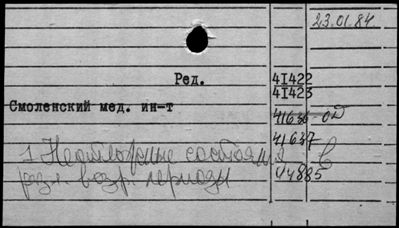 23.01.84.
Ред. 41422
41423
Смоленский мед. ин-т
41636-од
41637
1 Неотложные состояния в
разл. возр. периоды 44885